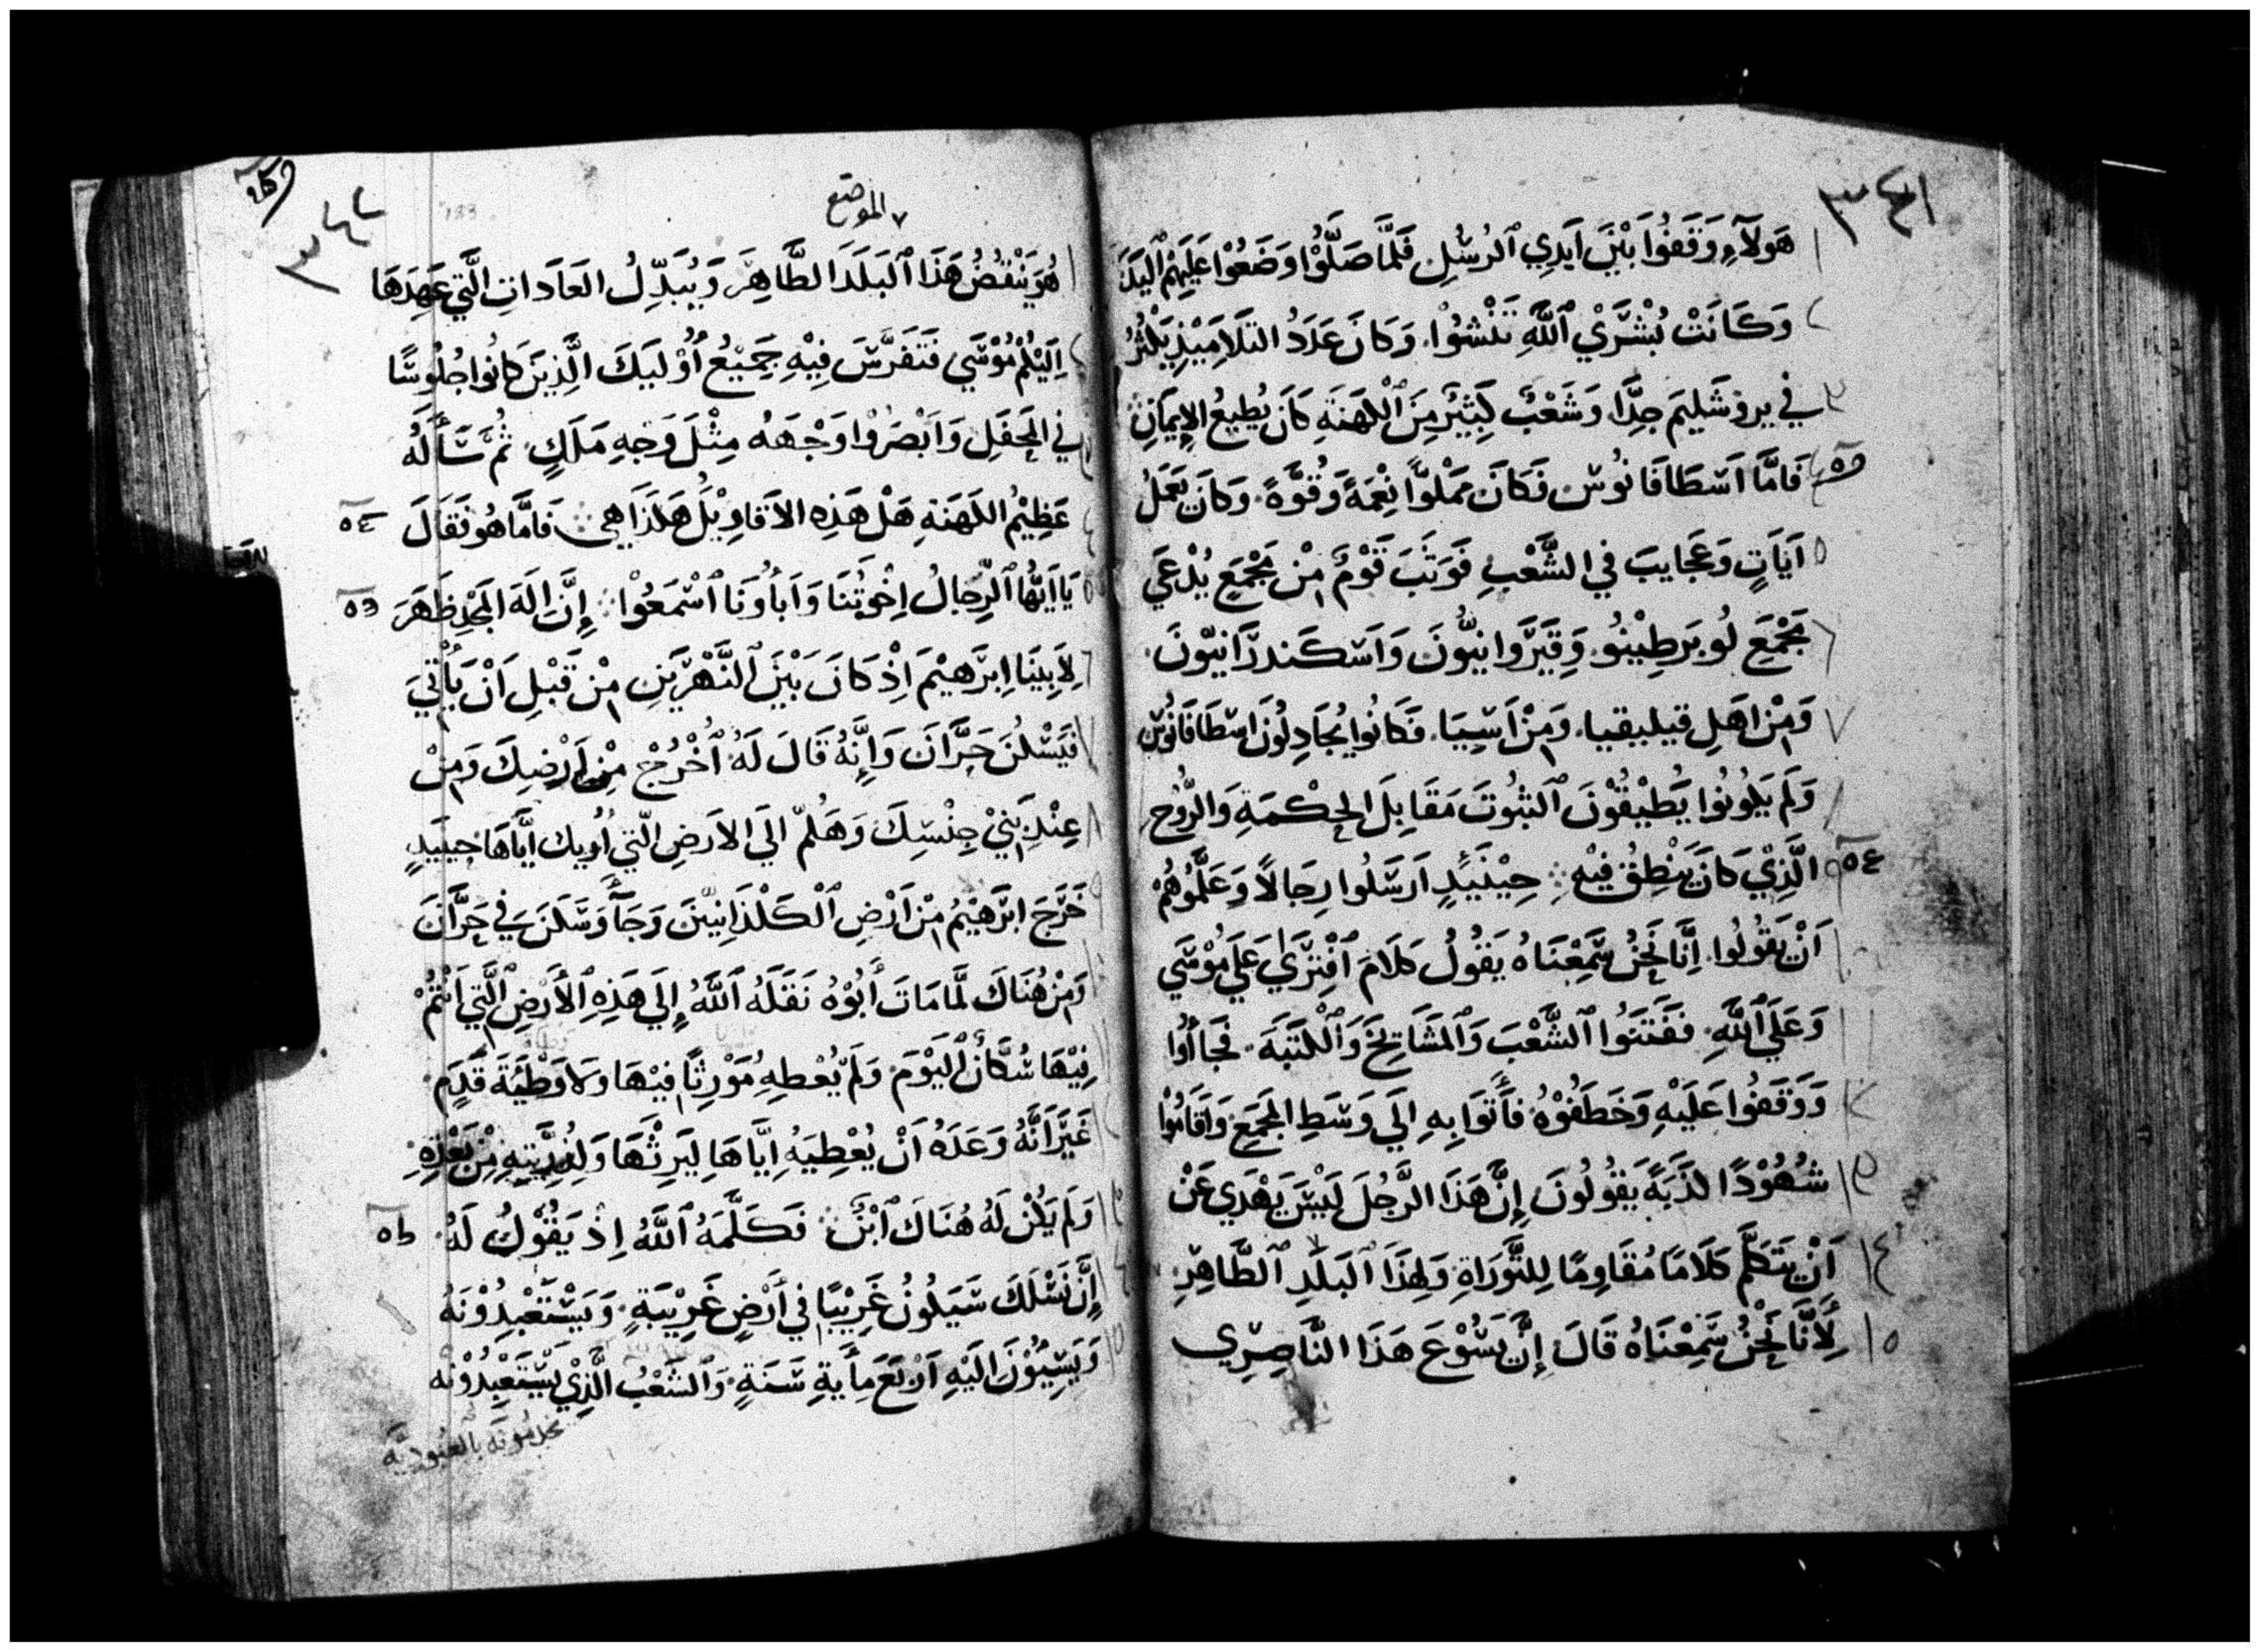 ٣٤١
هَولآءِ وَقَفُوا بَيْنَ اَيدِي ٱلرُسُلِ فَلَمَّا صَلَّوْا وَضَعُوْا عَلَيْهِمْ ٱليَدَ
وَكَانَتْ بُشْرَيْ ٱللَّهِ تَنْشُوْا. وَكَانَ عَدَدُ التَلَامِيْذِ يَكْثُرُ
في يروشَلِيمَ جِدًّا وَشَعْبٌ كَثِيْرٌ مِنَ ٱلكَهَنَةِ كَانَ يُطِيعُ الإِيمَانَ
فَامَّا اَسْطَافَانُوس فَكَانَ مَمْلُوًّا نِعْمَةً وَقُوَّةً. وَكَانَ يَعْمَلُ
اَيَاتٍ وَعَجَايبَ في الشَّعْبِ فَوَثَبَ قَوْمٌ مِنْ مَجْمَعِ يُدْعَي
مَجْمَعِ لُوبَرطِينُو. وَقِيَرَّوانِيُّونَ وَاَسْكَندرَانيّونَ.
وَمِنْ اهَلِ قيليقيا. وَمِنْ اَسِيَا. فَكَانُوا يُجَادِلُونَ اسْطَافَانُوسَ
وَلَم يَكُونُوا يُطِيْقُوْنَ ٱلثبُوتَ مَقَابِلَ الحِكْمَةِ وَالرُّوْحِ
الَّذِيْ كَانَ يَنْطِقُ فِيْهِ حِيْنَيْدٍ اَرسَلُوا رِجَالاً وَعَلَّمُوهُمْ
اَنْ يَقُولُوا. اِنَّا نَحْنُ سَمِعْنَاهُ يَقُولُ كَلَامَ ٱفْتِرَي عَلَي مُوْسَي
وَعَلَي ٱللَّهِ. فَفَتَنُوا ٱلشَّعْبَ وَٱلمَشَايِخَ وَٱلْكَتَبَةَ. فَجَاأُوا
وَوَقَفُوا عَلَيْهِ وَخَطَفُوْهُ فأَتَوا بِهِ اِلَي وَسَطِ المَجمَعِ وَاقَامُوْا
شُهُوْدًا كذَبَةً يَقُولُونَ اِنَّ هَذَا الرَّجُلَ لَيْسَ يَهْدَي عَنْ
اَنْ يَتَكَلَّمَ كَلَامًا مُقَاوِمًا لِلتَّوْرَاةِ وَلِهَذَا ٱلبَلَدِ ٱلطَّاهِرِ
لِأَنَّا نَحْنُ سَمِعْنَاهُ قَالَ إِنَّ يَسُوْعَ هَذَا النَّاصِرِي
٣٤٢
الموضع
هُوَ يَنْقُضُ هَذَا ٱلبَلَدَ الطَّاهِرَ وَيُبَدِّلُ العَادَاتِ الَّتِي عَهِدَهَا
اِلَيْكُمْ مُوْسَي فَتَفَرَّسَ فِيْهِ جَمِيْعُ أُوْلَيَكَ الَّذِينَ كَانُوا جُلُوسًا
في المَحْفَلِ وَاَبْصَرُوا وَجْهَهُ مِثْلَ وَجهِ مَلَكٍ. ثُمَّ سَأَلَهُ
عَظِيْمُ الكَهَنَةِ هَلْ هَذِهِ الاَقَاوِيْلُ هَكَذَا هِي فَامَّا هُو فَقَالَ ٥٤
يَا اَيُّهَا ٱلرِّجَالُ اِخْوتُنَا وَاَبأُونَا ٱسْمَعُوْا إِنَّ اِلَهَ المَجْدِ ظَهَرَ ٥٥
لِأَبِينَا اِبْرَهِيْمَ اِذْ كَانَ بَيْنَ ٱلنَّهْرَيْنِ مِنْ قَبْلِ اَنْ يَأْتِيَ
فيَسْكُنَ حَرَّانَ وَاِنَّهُ قَالَ لَهُ ٱخْرُجْ مِنْ اَرْضِكَ وَمِنْ
عِنْدِ بَنِيْ جِنْسِكَ وَهَلُمَّ الَي الاَرَضِ الّتِي اُوريك ايَّاهَا حِينَيدٍ
خَرَجَ ابْرَهِيْمُ مِنْ اَرْضِ ٱلْكَلْدَانِيّينَ وَجَأَ وَسَكَنَ فِي حَرَّانَ
وَمِنْ هُنَاكَ لَمَّا مَاتَ أَبُوْهُ نَقَلَهُ ٱللَّهُ إِلَي هَذِهِ ٱلأَرْضِ ٱلَّتِي اَنْتُمْ
فِيْهَا سُكَّانٌ ٱليَوْمَ. وَلَم يُعْطِهِ مَوْرِثًا فِيْهَا وَلَا وَطْيَةَ قَدَمٍ.
غَيْرَ اَنَّهُ وَعَدَهُ اَنْ يُعْطِيَهُ اِيَّاهَا لِيَرِثْهَا وَلِذُرِّيَّتِهِ مِنْ بَعْدِهِ
وَلَم يَكُنْ لَهُ هُنَاكَ ٱبْنٌ فَكَلَّمَهُ ٱللَّهُ اِذْ يَقُوْلُ لَهُ ٥٦
إِنَّ نَسْلَكَ سَيَكُونُ غَرِيْبًا فِي أَرْضٍ غَرِيْبَةٍ. وَيَسْتَعْبِدُوْنَهُ
وَيَسِيُوْنَ اِلَيْهِ اَرْبَعَ مِأَيةِ سَنَةٍ. وَٱلشَعْبُ الَّذِيْ يَسْتَعْبِدُوْنَهُ
يخدمونه بالعبودية